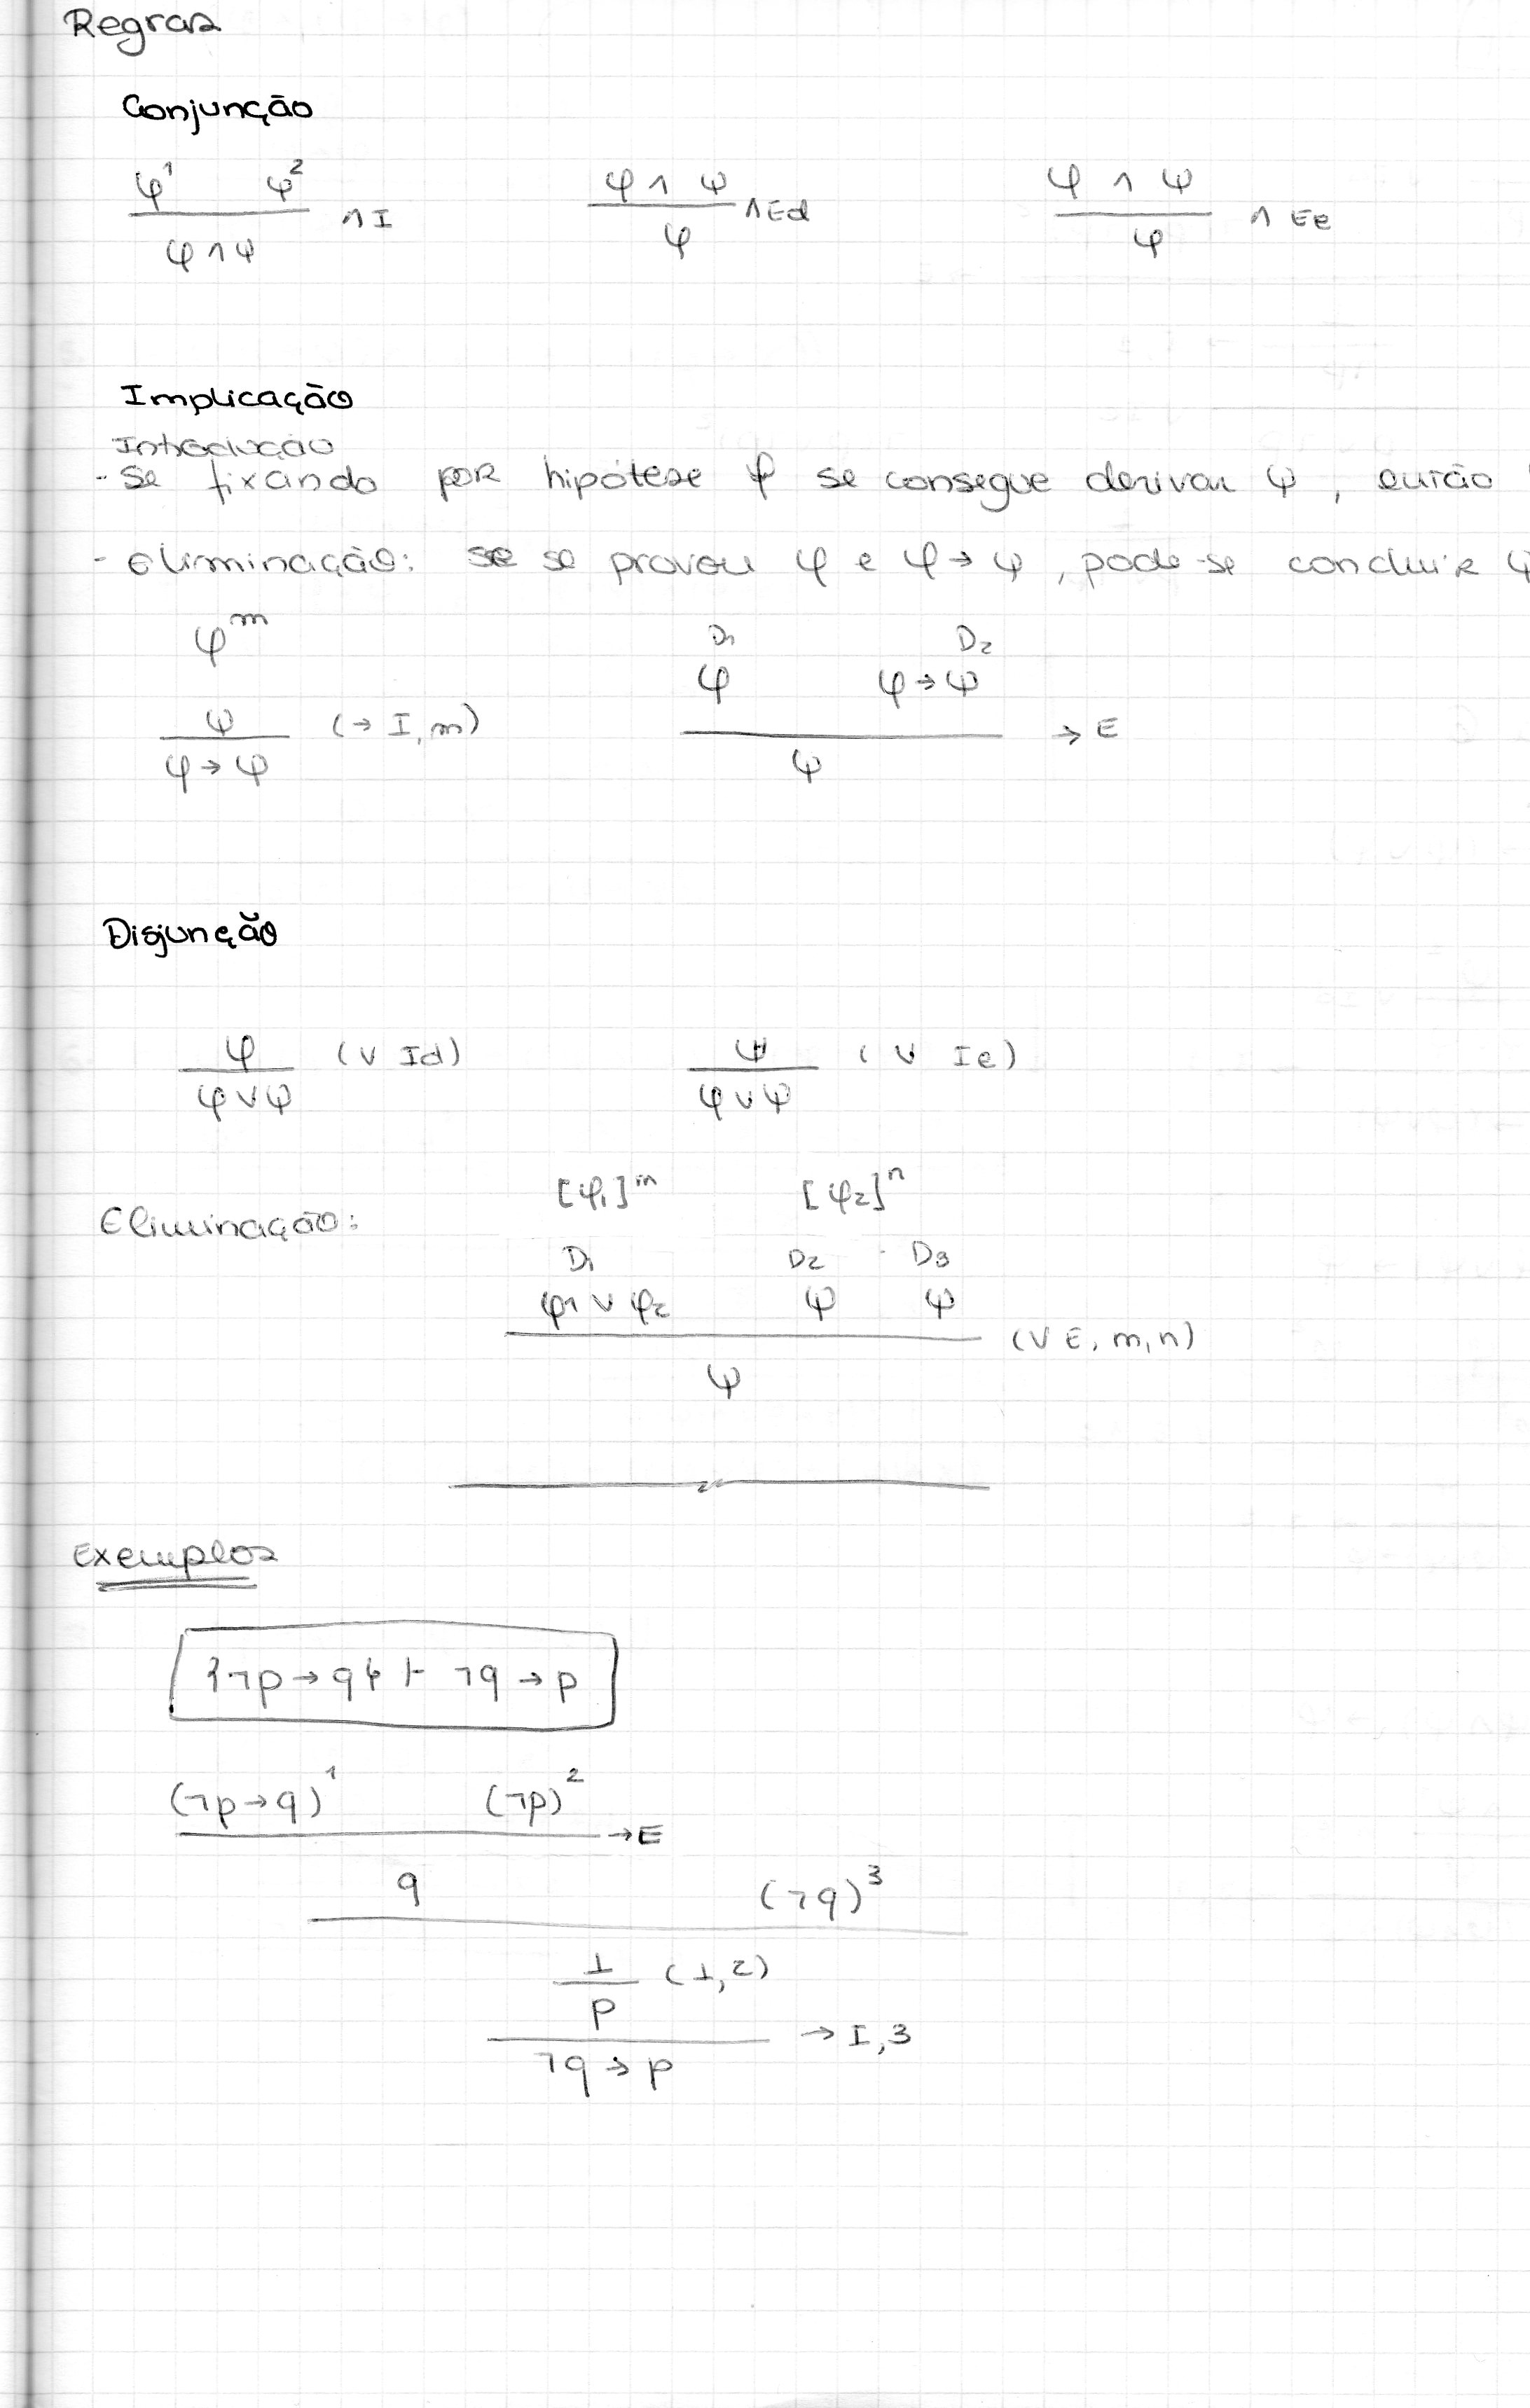 Regras
Conjunção
φ¹ ψ² φ ∧ ψ φ ∧ ψ
∧I ∧Ed ∧ Ee
φ∧ψ φ φ
Implicação
Introdução
- Se fixando por hipótese φ se consegue derivar ψ, então
- eliminação: se se provou φ e φ→ψ, pode-se concluir ψ
φᵐ D₁ D₂
φ φ→ψ
ψ (→ I, m) → E
φ→ψ ψ
Disjunção
φ (∨ Id) ψ (∨ Ie)
φ∨ψ φ∨ψ
[φ₁]ᵐ [φ₂]ⁿ
Eliminação:
D₁ D₂ D₃
φ1 ∨ φ₂ ψ ψ
(∨ E, m, n)
ψ
Exemplos
{¬p→q} ⊢ ¬q→p
(¬p→q)¹ (¬p)²
→E
q (¬q)³
⊥ (⊥,2)
p
→ I,3
¬q→p